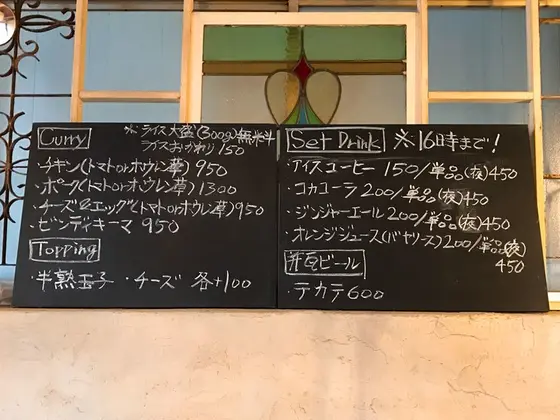 Curry ※ライス大盛(300g)無料
ライスおかわり150
・チキン(トマトorホウレン草)950
・ポーク(トマトorホウレン草)1300
・チーズ&エッグ(トマトorホウレン草)950
・ビンディキーマ 950
Topping
・半熟玉子 ・チーズ 各+100
Set Drink ※16時まで!
・アイスコーヒー 150/単品(夜)450
・コカコーラ 200/単品(夜)450
・ジンジャーエール 200/単品(夜)450
・オレンジジュース(バヤリース)200/単品(夜)
450
瓶ビール
・テカテ600